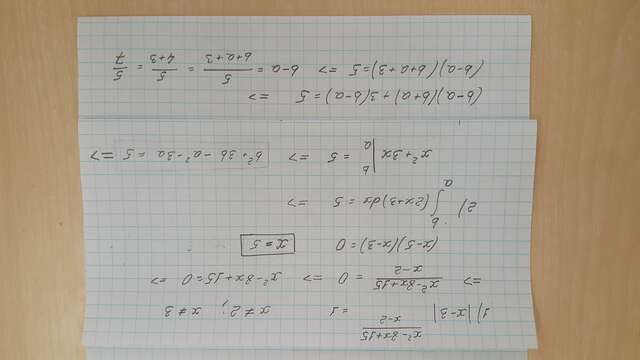 1) |x-3|^((x²-8x+15)/(x-2)) = 1 x ≠ 2; x ≠ 3
=> (x²-8x+15)/(x-2) = 0 => x²-8x+15=0 =>
(x-5)(x-3)=0 x = 5
2) ∫_a^b (2x+3)dx = 5 =>
x²+3x |_a^b = 5 => b²+3b-a²-3a = 5 =>
(b-a)(b+a)+3(b-a) = 5 =>
(b-a)(b+a+3)=5 => b-a = 5/(b+a+3) = 5/(4+3) = 5/7